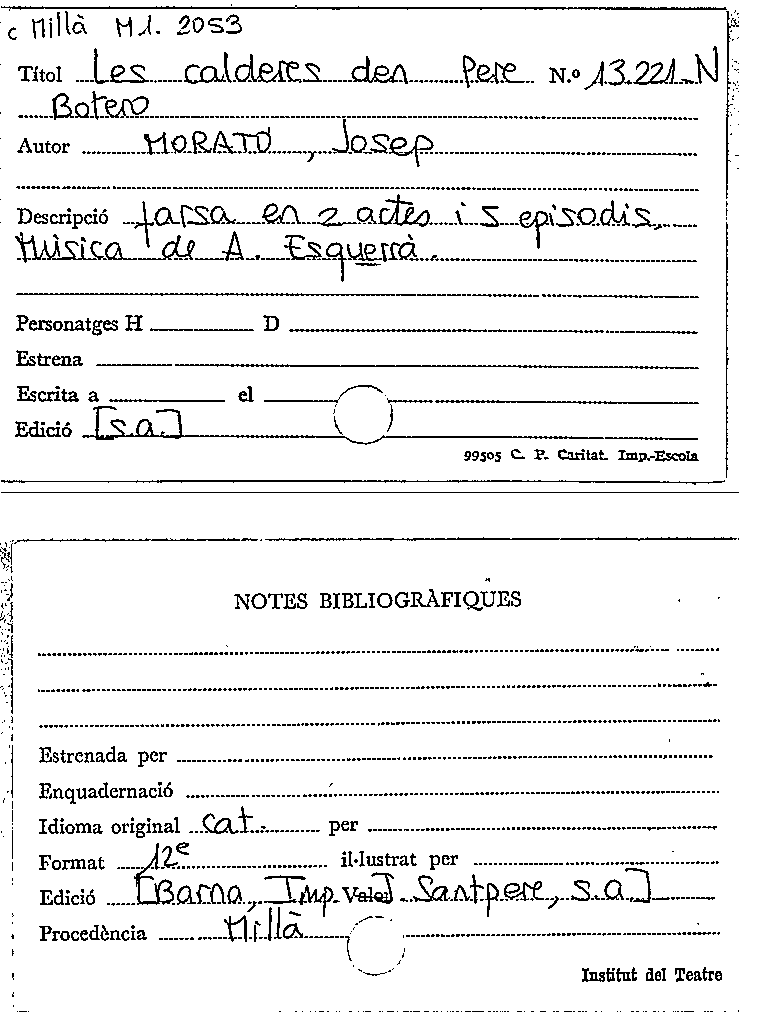 c Millà M1. 2053
Títol Les calderes den Pere N.º 13.221-N
Botero
Autor MORATÓ, Josep
Descripció farsa en 2 actes i 5 episodis.
Música de A. Esquerrà.
Personatges H D
Estrena
Escrita a el
Edició [s.a.]
99505 C. P. Caritat. Imp.-Escola
NOTES BIBLIOGRÀFIQUES
Estrenada per
Enquadernació
Idioma original cat. per
Format 12e il·lustrat per
Edició [Barna, Imp. Santpere, s.a]
Procedència Millà
Institut del Teatre